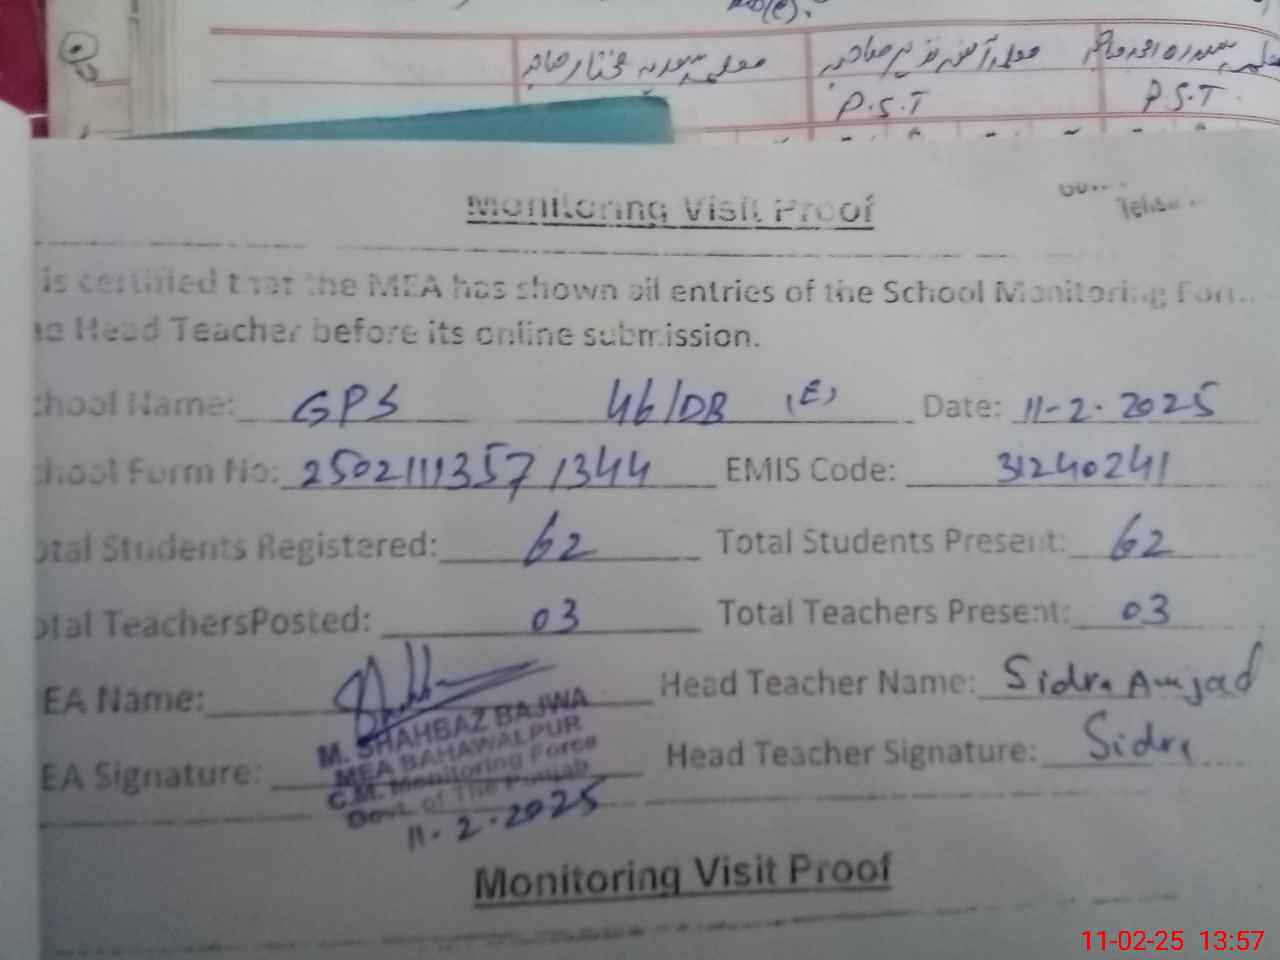 معلمہ سدرہ مختار صاحبہ
P.S.T
P.S.T
Monitoring Visit Proof
is certified that the MEA has shown all entries of the School Monitoring For
e Head Teacher before its online submission.
chool Name: GPS 46/DB (E) Date: 11-2-2025
chool Form No: 25021113571344 EMIS Code: 31240241
otal Students Registered: 62 Total Students Present: 62
otal TeachersPosted: 03 Total Teachers Present: 03
EA Name: Head Teacher Name: Sidra Amjad
M. SHAHBAZ BAJWA
MEA BAHAWALPUR
C.M. Monitoring Force
Govt. of The Punjab
EA Signature: Head Teacher Signature: Sidra
11-2-2025
Monitoring Visit Proof
11-02-25 13:57